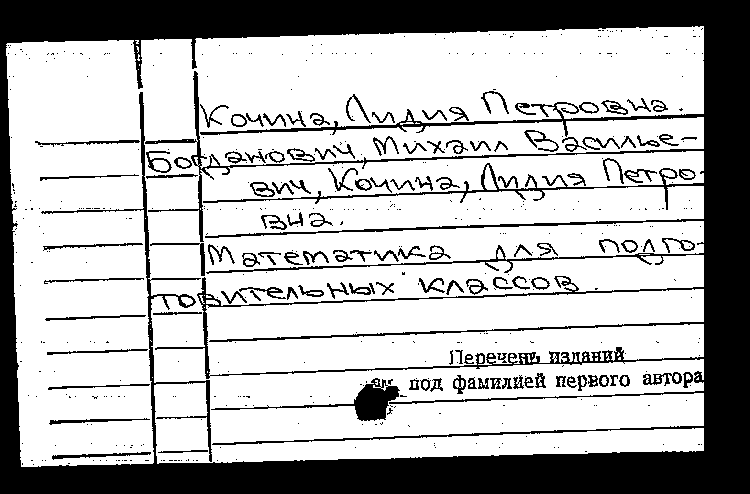 Кочина, Лидия Петровна.
Богданович, Михаил Василье-
вич, Кочина, Лидия Петро-
вна.
Математика для подго-
товительных классов.
Перечень изданий
см. под фамилией первого автора